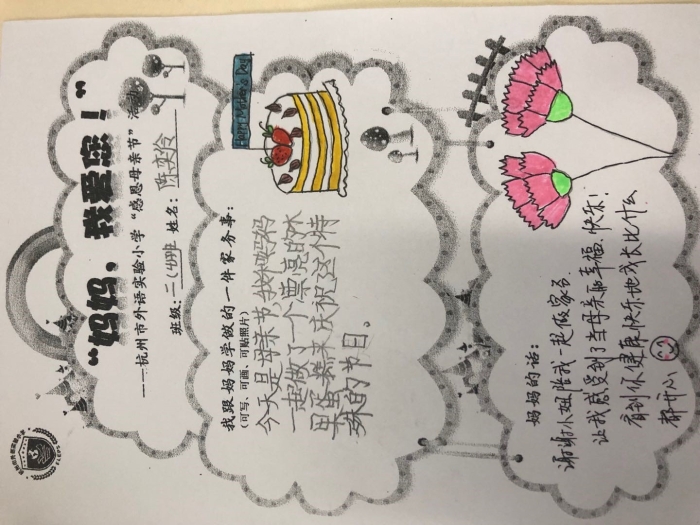 “妈妈，我爱您！”
——杭州市外语实验小学“感恩母亲节”活
班级：二（4）班 姓名：陈奕伶
我跟妈妈学做的一件家务事：
（可写、可画、可贴照片）
Happy Mother's Day!
今天是母亲节，我和妈妈
一起做了一个漂亮的水
果蛋糕来庆祝这个特
殊的节日。
妈妈的话：
谢谢小妞陪我一起做家务.
让我感受到了当母亲的幸福、快乐！
看到你健康快乐地成长比什么
都开心